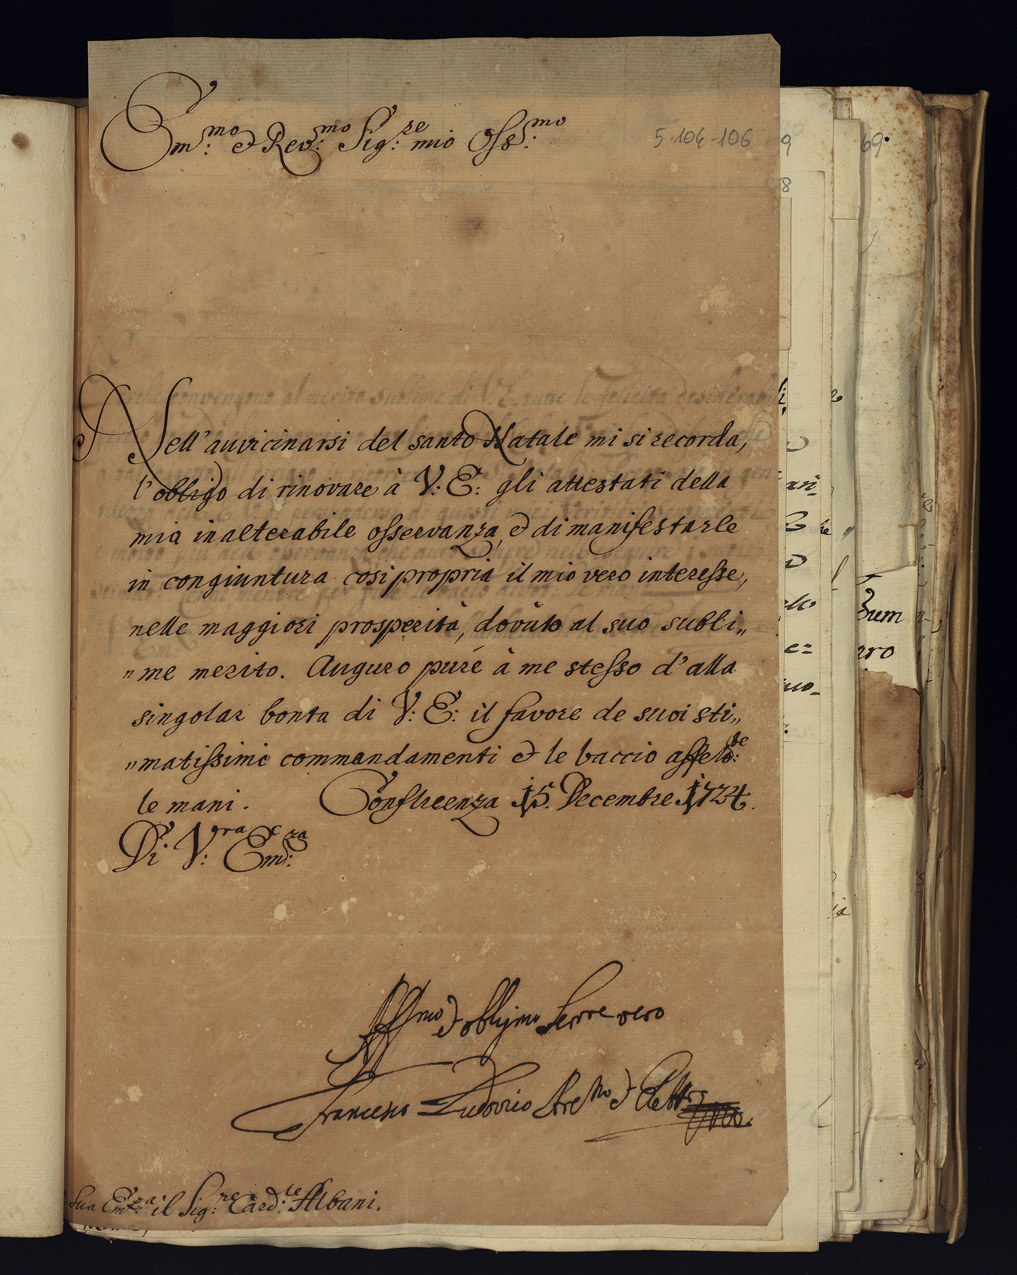 Em.mo & Rev.mo Sig.re mio Oss.mo
5 104-106
69.
Nell'auvicinarsi del santo Natale mi si recorda,
l'obligo di rinovare à V: E: gli attestati della
mia inalterabile osservanza, & di manifestarle
in congiuntura cosi propria il mio vero interesse,
nelle maggiori prosperità, dovùto al suo subli„
„me merito. Auguro puré à me stesso d'alla
singolar bonta di V: E: il favore de suoi sti„
„matissimi commandamenti & le baccio affett:be
le mani. Confluenza 15. Decembre 1724.
Di V:ra Em:za
Aff.mo & obligmo Serre vero
Francesco Ludovico Are & Elett
Sua Em:za il Sig:re Card:le Albani.